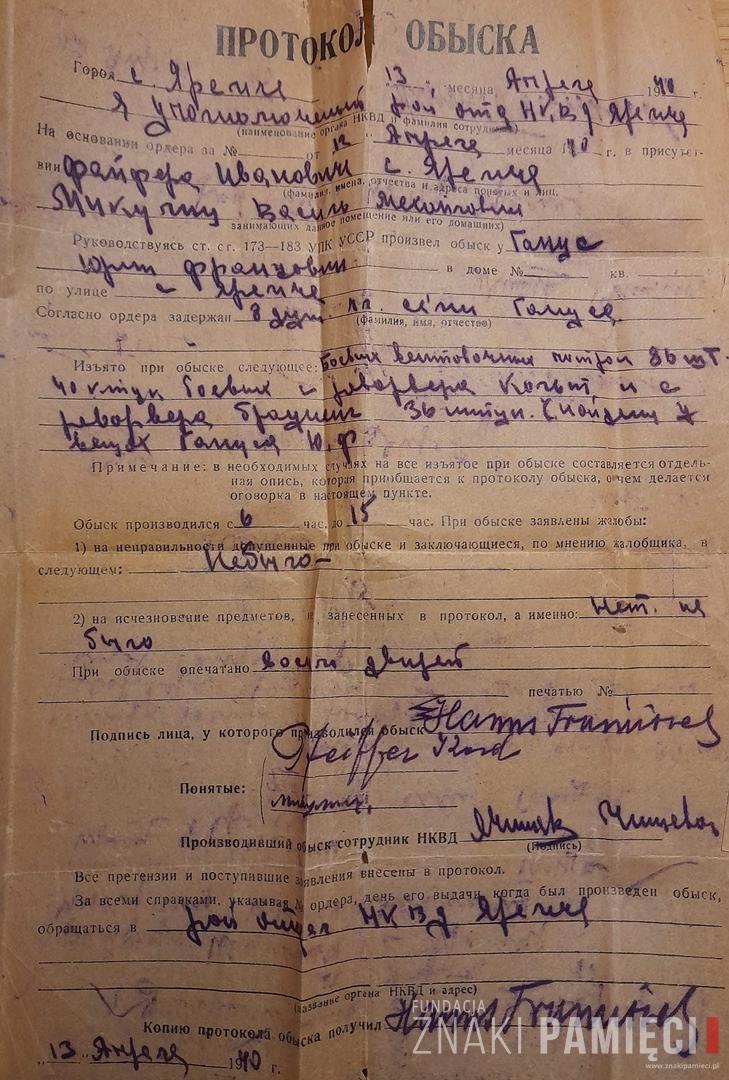 ПРОТОКОЛ ОБЫСКА
Город с. Яремче 13 месяца Апреля 1940 г.
Я уполномоченный рай отд НКВД Яремче
(наименование органа НКВД и фамилия сотрудника)
На основании ордера за № от 12 Апреля месяца 40 г. в присутст-
вии Файфера Ивановича с. Яремче
(фамилия, имена, отчества и адреса понятых и лиц,
Микучку Василь
занимающих данное помещение или его домашних)
Руководствуясь ст. ст. 173—183 УПК УССР произвел обыск у Гануса
Францовича в доме № кв.
по улице с Яремче
Согласно ордера задержан 8 душ Гануса
(фамилия, имя, отчество)
Изъято при обыске следующее: Боевых винтовочных патрон 36 шт.
40 штук боевых с револьвера Кольт и с
револьвера Браунинг 36 штук. (найдены у
вещах Гануса Ю. Ф
Примечание: в необходимых случаях на все изъятое при обыске составляется отдель-
ная опись, которая приобщается к протоколу обыска, о чем делается
оговорка в настоящем пункте.
Обыск производился с 6 час. до 15 час. При обыске заявлены жалобы:
1) на неправильности допущенные при обыске и заключающиеся, по мнению жалобщика, в
следующем: Небыло-
2) на исчезновение предметов, не занесенных в протокол, а именно: Нет. не
было
При обыске опечатано дверей
печатью №
Подпись лица, у которого производился обыск Hanus Franciszek
Pfeiffer Karol
Понятые:
Производивший обыск сотрудник НКВД
(Подпись)
Все претензии и поступившие заявления внесены в протокол.
За всеми справками, указывая № ордера, день его выдачи, когда был произведен обыск,
обращаться в рай отдел НКВД Яремче
(название органа НКВД и адрес)
Копию протокола обыска получил Hanus Franciszek
„13„ Апреля 1940 г.
FUNDACJA
ZNAKI PAMIĘCI
www.znakipamieci.pl